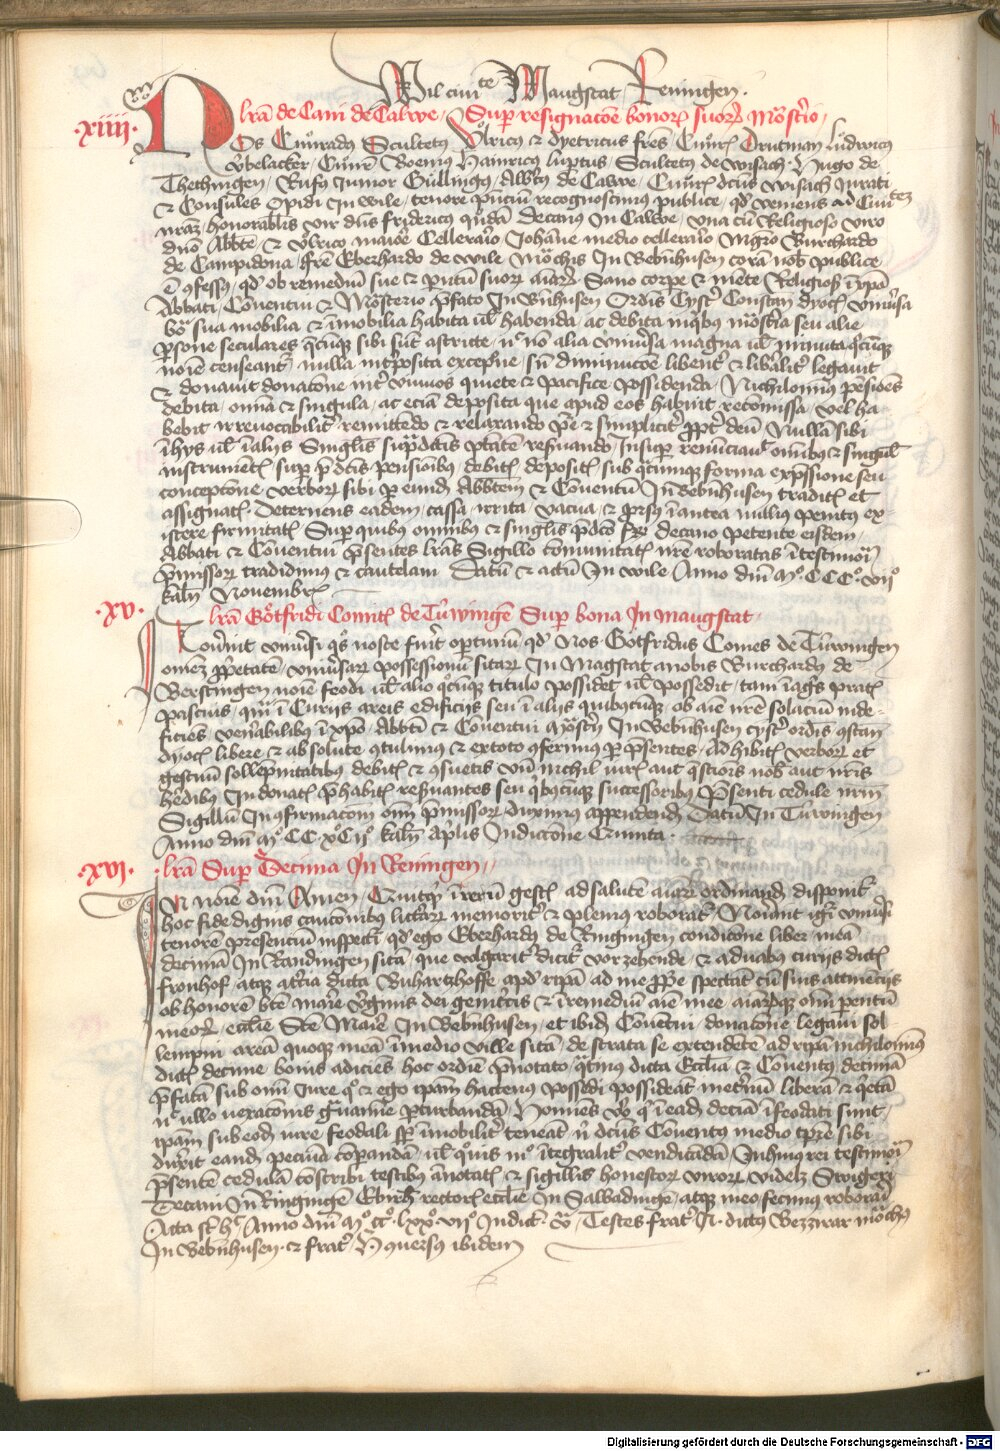 Wil ciuitē Maugstat Reningen.
·xiiii· lr̄a de Cani de Calwe, Super resignacōe bonor suor Mōstrio,
Nos Cůnradus Scultetus Ůlricus et dyetricus frēs Cůnr Drutman Lůdwicus
Ůbelacker, Cůnr Boemus Hainricus Luptus, Scultetus de wisach, Hugo de
Thethingen, Rufus Junior Gůllingus, Albtus de Calwe, Cůnr dcus wisach Jurati
et Consules Opidi In wile, tenore pn̄ciū recognoscimus publice, qd veniens ad Ciuitez
nrāz honorabilis vir dn̄s fridericus qͦdā Decanus In Calwe, vna cū Religioso viro
dn̄o Abbte et vlrico maiōe Cellerar̄io Johāne medio cellerar̄io Mgr̄o Burchardo
de Campidona, fr̄e Eberhardo de wile Mōchis In Bebnhusen corā nob publice
ē ꝯfessus, qd ob remediū sue et pntū suor aīar, Sano corpe et mēte Religiosis ī xpō
Abbati, Conuentui et Mōsterio pfato In Bnhusen Ordīs Cysti Constan dyoc vniūsa
bō sua mobilia et īmobilia habita ul habenda, ac debita
psone seculares qcūqz sibi sūt astricte, uͨ nō alia vniūsa magna ul minuta qcūqz
noīe censeantᷣ, nulla intposita excepōne, sn̄ diminucōe libent et libalit legauit
et donauit donatōne intͤ viuuos quiete et pacifice possidenda, Nichilominus pēsiōes
debita, om̄ia et singula, ac eciā deposita que apud eos habuit recōmissa, vel ha
bebit irreuocabilit remittēdo et relaxando pͤ et simplicit ppt deū Nullā sibi
ī hys ul ī alys Singlis supᷓdctis ptātē resuando Insup renūciauit om̄ibus et singul
instrumētis, sup pdctis pensionibus, debitis depositis sub qcūqz forma expssione seu
conceptōne verbor sibi per eund Abbtem et Cōuentū In Bebnhusen traditis et
assignatis. Deternens eadem, cassa, irrita, vacua, et psus ī antea nullius penitus ex=
istere firmitatis Sup quibus om̄ibus et singlis pdco fri decano petente eisdem,
Abbati et Cōuentui psentes lrās Sigillo cōmunitatis nre roboratas ī testimoīu
pmissor tradidimus et cautelam Datū et actū In wile Anno dm̄ Mͦ. CCCͦ. viiͦ
kal͞n Nouembr
·xv· lrā Gōtfridi Comitis de Tūwingē Sup bona In Maugstat.
Nouīnt vniūsi qͦs nosce fuit oportunū qd Nos Gōtfridus Comes de Tūwingen
omēz ppetatē, vniūsar possessionū sitar In Magstat anobis Burchardus de
Berstingen noīe feodi ul alio qͦcūqz titulo possidet ul possedit, tam ī agris pratis
pascuis, qm̄ ī Curijs areis edificijs seu ī alijs quibuscūqz ob aīe nrē solaciū inde=
ficiēs venabilibus ī xpō, Abbti et Cōuentui Mōsty In Webnhusen cystͬ ordīs ꝯstan
dyoc libere et absolute ꝯtulimus et ex toto ꝯferimus p psentes, Adhibitis verbor et
gestiuū sollēpnitatibus debitis et ꝯsuetis vnū nichil iuris aut qstiōis nob aut nrīs
hedibus Indonatis phabitis resuantes seu qbuscuqz successoribus Psenti cedule nrm̄
Sigillū In ꝯfirmacōem om̄i pmissor duximus appendend Datū In Tūwingen
Anno dm̄ Mͦ. CC. xCͦ. iiͦ kal͞n Aplis Indictōne Quinta.
·xvi· lrā Sup Decima In Reningen,
In noīe dm̄ Amen Quicqd ī rerū gestis ad salutē aīar ordinand disponitᷣ
hoc fide dignis caucionibus littar memoritᷣ et plenius roboratᷣ, Nouīnt igit vniūsi
tenorē presenciū inspectͥ qd ego Eberhardus de Ringingen condicōne liber, meā
decimā In Randingen sitā, que volgaritᷣ dicitᷣ vorzehende, et a duabus curijs dictis
fronhof, atqz altia dicta Buhartzhoffe, apd ripā ad me ppe spectātē cū suis attinēcijs
ob honorē btē marie Vginis dei genitricis et ī remediū aīe mee, aīarūqz om̄i pentū
meor, ecclie Stē Marie In Bebnhusen, et ibid Cōuentui donatōne legaui sol
lempni areā quoqz meā ī medio ville sitā, de strata se extendētē ad ripā nichilomīus
dictis decime bonis adiciēs hoc ordīe pnotato, qͣtinus dicta Ecclīa et Cōuentus decimā
pfatā sub om̄i Iure qͦ et ego ipam hactenus possedi possideat inetnū liberā et qetā
nͨ ullo vexacōnis gͣuamīe pturbanda, Homīes vͦ qui ī ead decīa ī feodati sunt,
ipam sub eod iure feodali sp īmobilitᷣ teneāt, nͥ dctus Cōuentus medio tpre sibi
duxit eand pecunia cōpandā ul qͦuis mͦ ītegralitᷣ vendicādā, In huius rei testimoīu
psentē cedulā cōscribi testibus ānotatis et sigillis honestor viror videlz Swigezi
Decani In Ringingē Ebirh rectoris ecclie In Salbadinge, atqz meo fecimus roborari
Acta st hͨ Anno dm̄ Mͦ. CCͦ. lxxͦ. viiͦ Indict. v̄, Testes frat H. dictus Bezzirar mōchus
In Bebnhusen. et frat, H. ꝯuersus ibidem
Digitalisierung gefördert durch die Deutsche Forschungsgemeinschaft - DFG